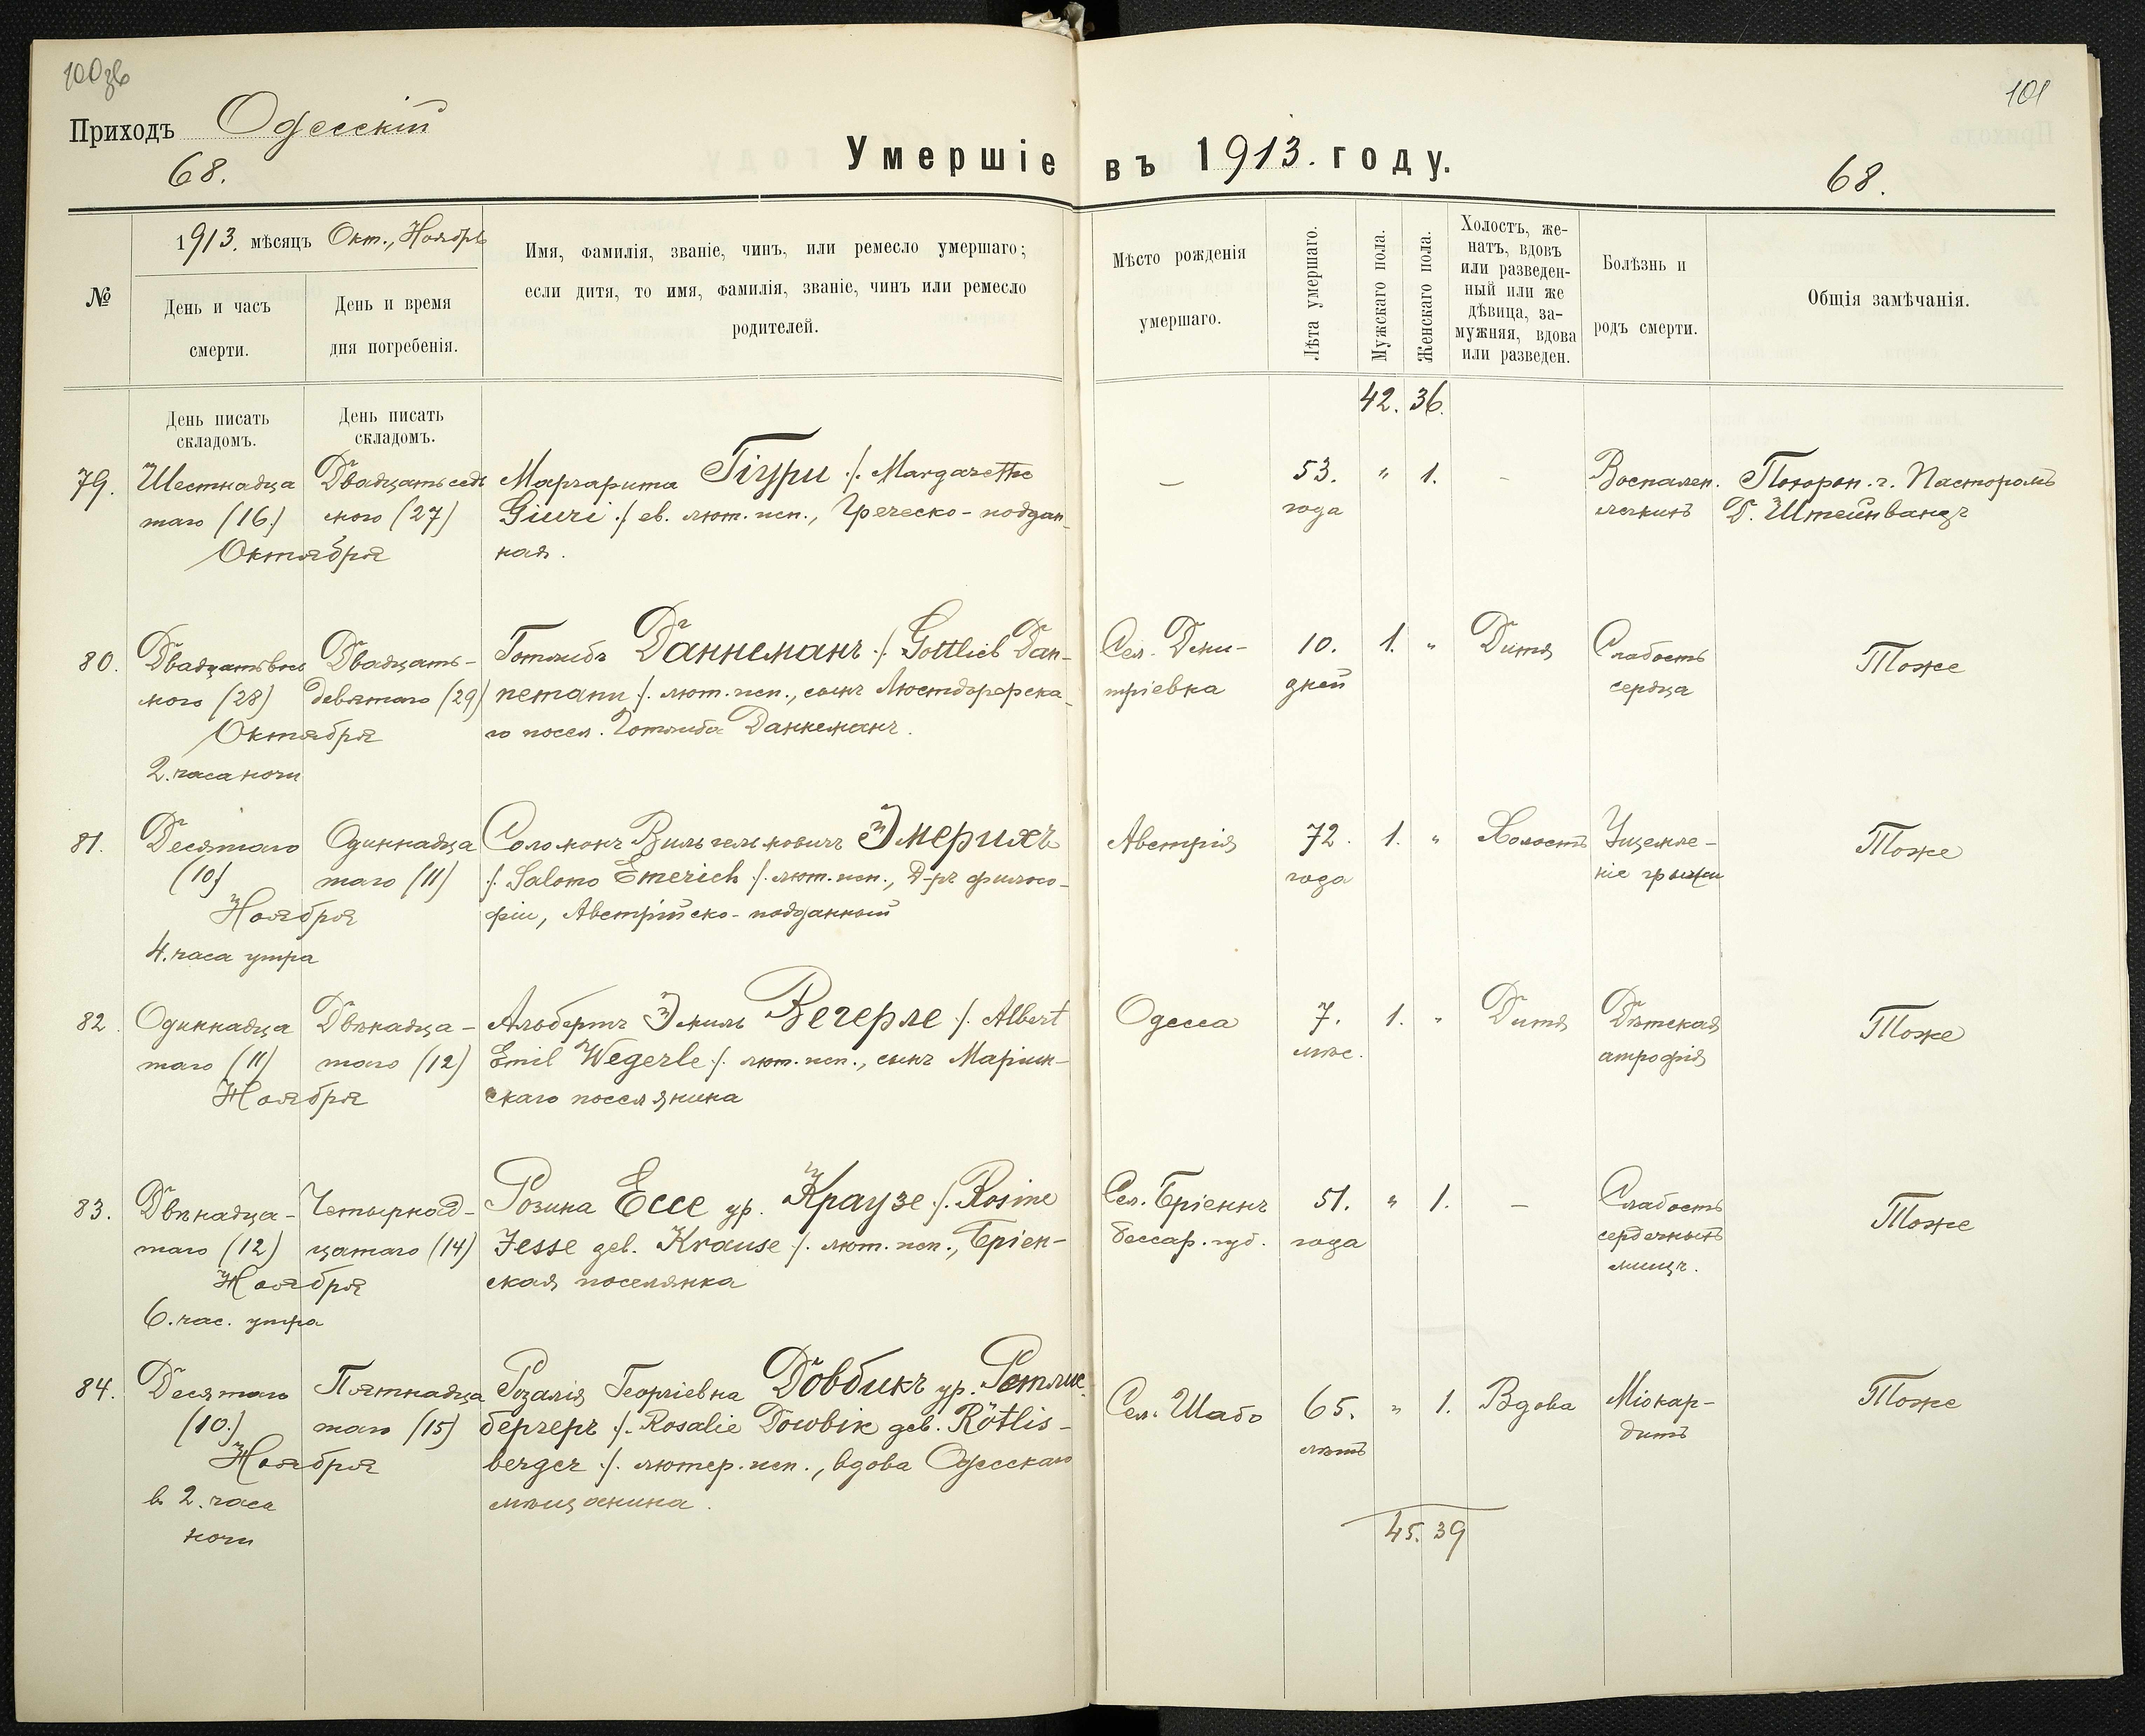 100зв
101
Приходъ Одесскій
68.
Умершіе въ 1913. году.
68.
№
1913. мѣсяцъ Окт., Ноябрь
День и часъ
смерти.
День и время
дня погребенія.
Имя, фамилія, званіе, чинъ, или ремесло умершаго;
если дитя, то имя, фамилія, званіе, чинъ или ремесло
родителей.
Мѣсто рожденія
умершаго.
Лѣта умершаго.
Мужскаго пола.
Женскаго пола.
Холостъ, же-
натъ, вдовъ
или разведен-
ный или же
дѣвица, за-
мужняя, вдова
или разведен.
Болѣзнь и
родъ смерти.
Общія замѣчанія.
День писать
складомъ.
День писать
складомъ.
42. 36.
79.
Шестнадца
таго (16.)
Двадцатьседь
мого (27)
Октября
Маргарита Гіури ./. Margarethe
Giuri ./. ев. лют. исп., Греческо-поддан-
ная.
—
53.
года
" 1.
-
Воспален.
легкихъ
Похорон. г. Пасторомъ
Д. Штейнвандъ
80.
Двадцатьвось
мого (28)
Двадцать-
девятаго (29)
Октября
2. часа ночи
Готлибъ Даннеманъ ./. Gottlieb Dan-
nemann ./. лют. исп., сынъ Люстдорфска-
го посел. Готлиба Даннеманъ.
Сел. Дми-
тріевка
10.
дней
1. "
Дитя
Слабость
сердца
Тоже
81.
Десятаго
(10)
Одиннадца
таго (11)
Ноября
4. часа утра
Соломонъ Вильгельмовичъ Эмерихъ
./. Salomo Emerich ./. лют. исп., Д-ръ филосо-
фіи, Австрійско-подданный
Австрія
72.
года
1. "
Холостъ
Ущемле-
ніе грыжи
Тоже
82.
Одиннадца
таго (11)
Двѣнадца-
таго (12)
Ноября
Альбертъ Эмиль Вегерле ./. Albert
Emil Wegerle ./. лют. исп., сынъ Маріин-
скаго поселянина
Одесса
7.
мѣс.
1. "
Дитя
Дѣтская
атрофія
Тоже
83.
Двѣнадца-
таго (12)
Четырнад-
цатаго (14)
Ноября
6. час. утра
Розина Ессе ур. Краузе ./. Rosine
Jesse geb. Krause ./. лют. исп., Бріен-
ская поселянка
Сел. Бріеннъ
бессар. губ.
51.
года
" 1.
—
Слабость
сердечныхъ
мышцъ.
Тоже
84.
Десятаго
(10.)
Пятнадца
таго (15)
Ноября
в 2. часа
ночи
Розалія Георгіевна Довбикъ ур. Ретлис-
бергеръ ./. Rosalie Dowbik geb. Rötlis-
berger ./. лютер. исп., вдова Одесскаго
мѣщанина.
Сел. Шабо
65.
лѣтъ
" 1.
Вдова
Міокар-
дитъ
Тоже
45. 39